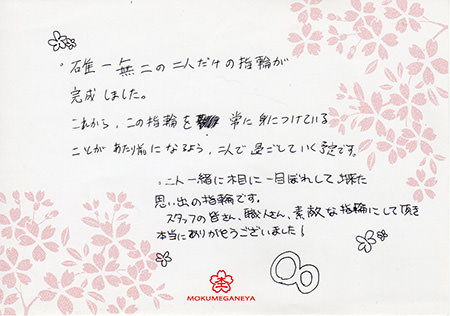 ・唯一無二の二人だけの指輪が
完成しました。
これから、この指輪を 常に身につけている
ことがあたり前になるよう、二人で過ごしていく予定です。
・二人一緒に木目に一目ぼれして出来た
思い出の指輪です。
スタッフの皆さん、職人さん、素敵な指輪にして頂き
本当にありがとうございました!
MOKUMEGANEYA